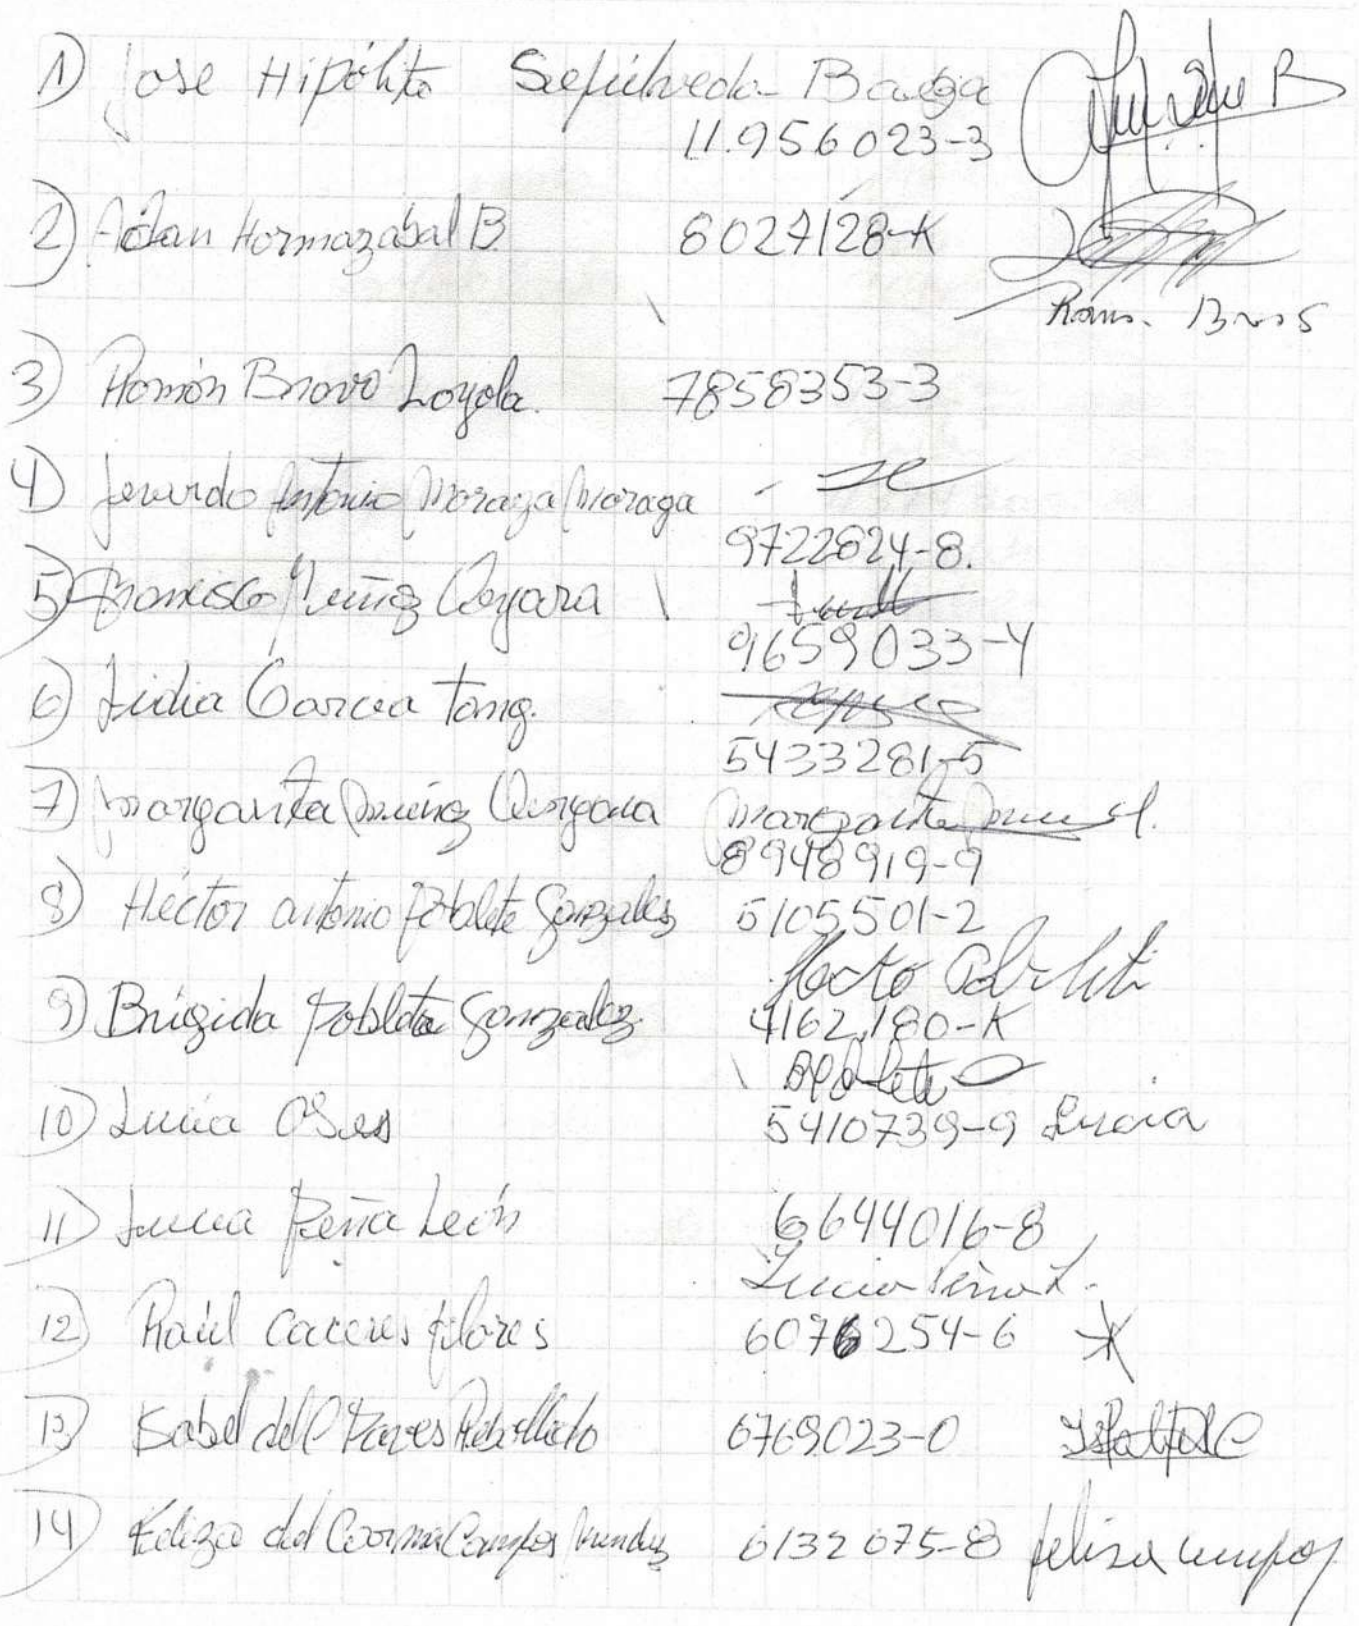 1) Jose Hipólito Sepúlveda Baeza
11.956023-3
2) Adan Hormazabal B. 8027128-K
3) Ramón Bravo Loyola. 7858353-3
4) Jerardo Antonio Moraga Moraga
9722824-8.
5) Francisco Muñoz Vergara
9659033-4
6) Lidia Garcia
5433281-5
7) Margarita Muñoz Vergara Margarita
8948919-9
8) Hector antonio Poblete Gonzalez 5105501-2
Hecto Poblete
9) Brigida Poblete Gonzalez 4162180-K
10) Lucia Oses 5410739-9 Lucia
11) Lucia Peña León 6644016-8
Lucia Peña L.
12) Raúl Caceres flores 6076254-6
13) Isabel del 6769023-0
14) Feliza del Campos 6132675-8 feliza campos